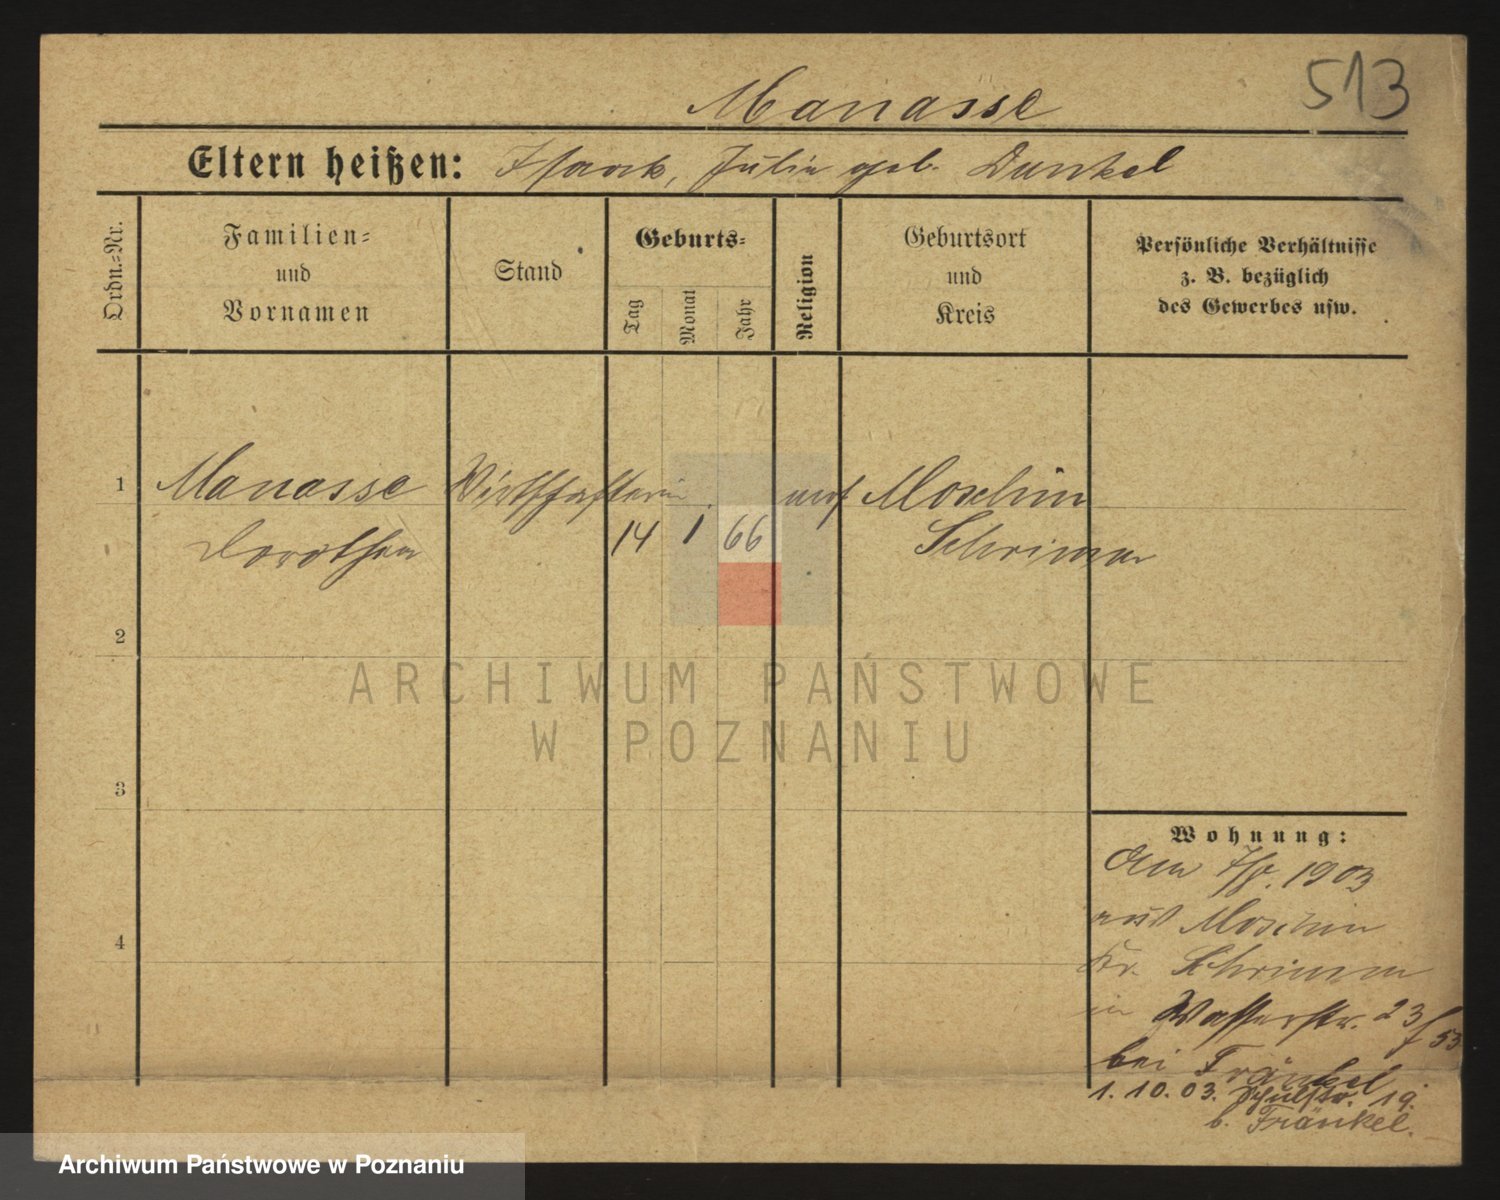 513
Manasse
Eltern heißen: Isaack, Julie geb. Dunkel
Ordn.-Nr.
Familien-
und
Vornamen
Stand
Geburts-
Tag
Monat
Jahr
Religion
Geburtsort
und
Kreis
Persönliche Verhältnisse
z. B. bezüglich
des Gewerbes usw.
1 Manasse Wirthschafterin mos Moschin
Dorothea 14 1 66 Schrimm
2
3
4
ARCHIWUM PAŃSTWOWE
W POZNANIU
Wohnung:
Am 1903
aus Moschin
Kr. Schrimm
in Wasserstr. 23
bei Fränkel
1. 10. 03. Schulstr. 19.
b. Fränkel.
Archiwum Państwowe w Poznaniu